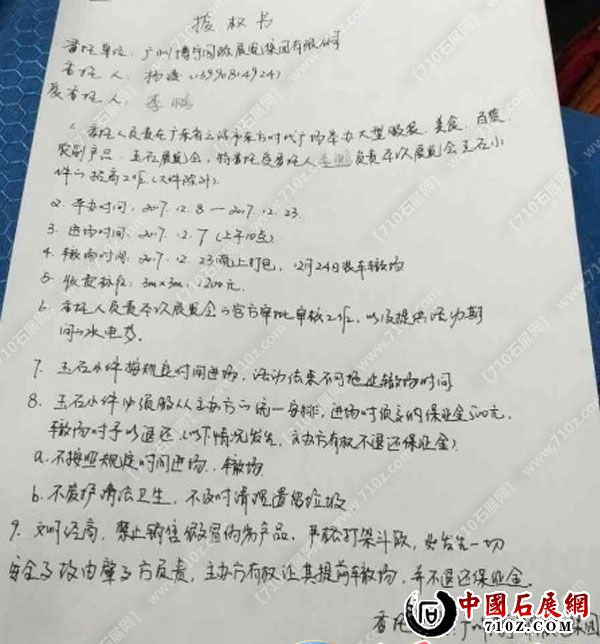 授权书
委托单位：广州博宇国际展览集团有限公司
委托人：杨 13990814924
受委托人：李鹏
1. 委托人负责在广东省云浮市东方时代广场举办大型服装、美食、百货、
农副产品、玉石展览会，特委托受委托人李鹏负责本次展览会玉石小
件的招商工作（大件除外）。
2. 举办时间：2017.12.8—2017.12.23.
3. 进场时间：2017.12.7（上午10点）
4. 撤场时间：2017.12.23晚上打包，12月24日装车撤场
5. 收费标准：3m×3m，1200元.
6. 委托人负责本次展览会的官方审批审核工作，以及提供活动期
间的水电等.
7. 玉石小件按规定时间进场，活动结束不可拖延撤场时间
8. 玉石小件必须服从主办方的统一安排，进场时须交纳保证金500元.
撤场时予以退还（以下情况发生，主办方有权不退还保证金）
a. 不按照规定时间进场、撤场
b. 不爱护清洁卫生，不及时清理遗留垃圾
9. 文明经商，禁止销售假冒伪劣产品，严禁打架斗殴，如发生一切
安全事故由肇事方负责，主办方有权让其提前撤场，并不退还保证金.
委托 广州 集团
【710石展网】 www.710z.com
中国石展网
710Z.COM